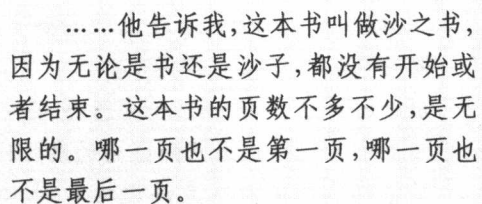 ……他告诉我,这本书叫做沙之书,
因为无论是书还是沙子,都没有开始或
者结束。这本书的页数不多不少,是无
限的。哪一页也不是第一页,哪一页也
不是最后一页。